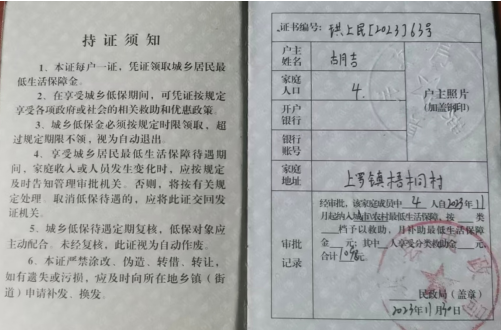 持证须知
1、本证每户一证，凭证领取城乡居民最
低生活保障金。
2、在享受城乡低保期间，可凭证按规定
享受各项政府或社会的相关救助和优惠政策。
3、城乡低保金必须按规定时限领取，超
过规定期限不领，视为自动退出。
4、享受城乡居民最低生活保障待遇期
间，家庭收入或人员发生变化时，应按规定
及时告知管理审批机关。否则，将按有关规
定处理。取消低保待遇的，应将此证交回发
证机关。
5、城乡低保待遇定期复核，低保对象应
主动配合。未经复核，此证视为自动作废。
6、本证严禁涂改、伪造、转借、转让，
如有遗失或污损，应及时向所在地乡镇（街
道）申请补发、换发。
证书编号：珙上民[2023]63号
户主
姓名
胡月吉
家庭
人口
4
户主照片
（加盖钢印）
开户
银行
银行
账号
家庭
地址
上罗镇梧桐村
审批
记录
经审批，该家庭成员中 4 人自2023年11
月起纳入城市农村最低生活保障，按 类
档予以救助，月补助最低生活保障
金 元；其中 人享受分类救助金 元，
合计 元。
民政局（盖章）
2023年11月30日